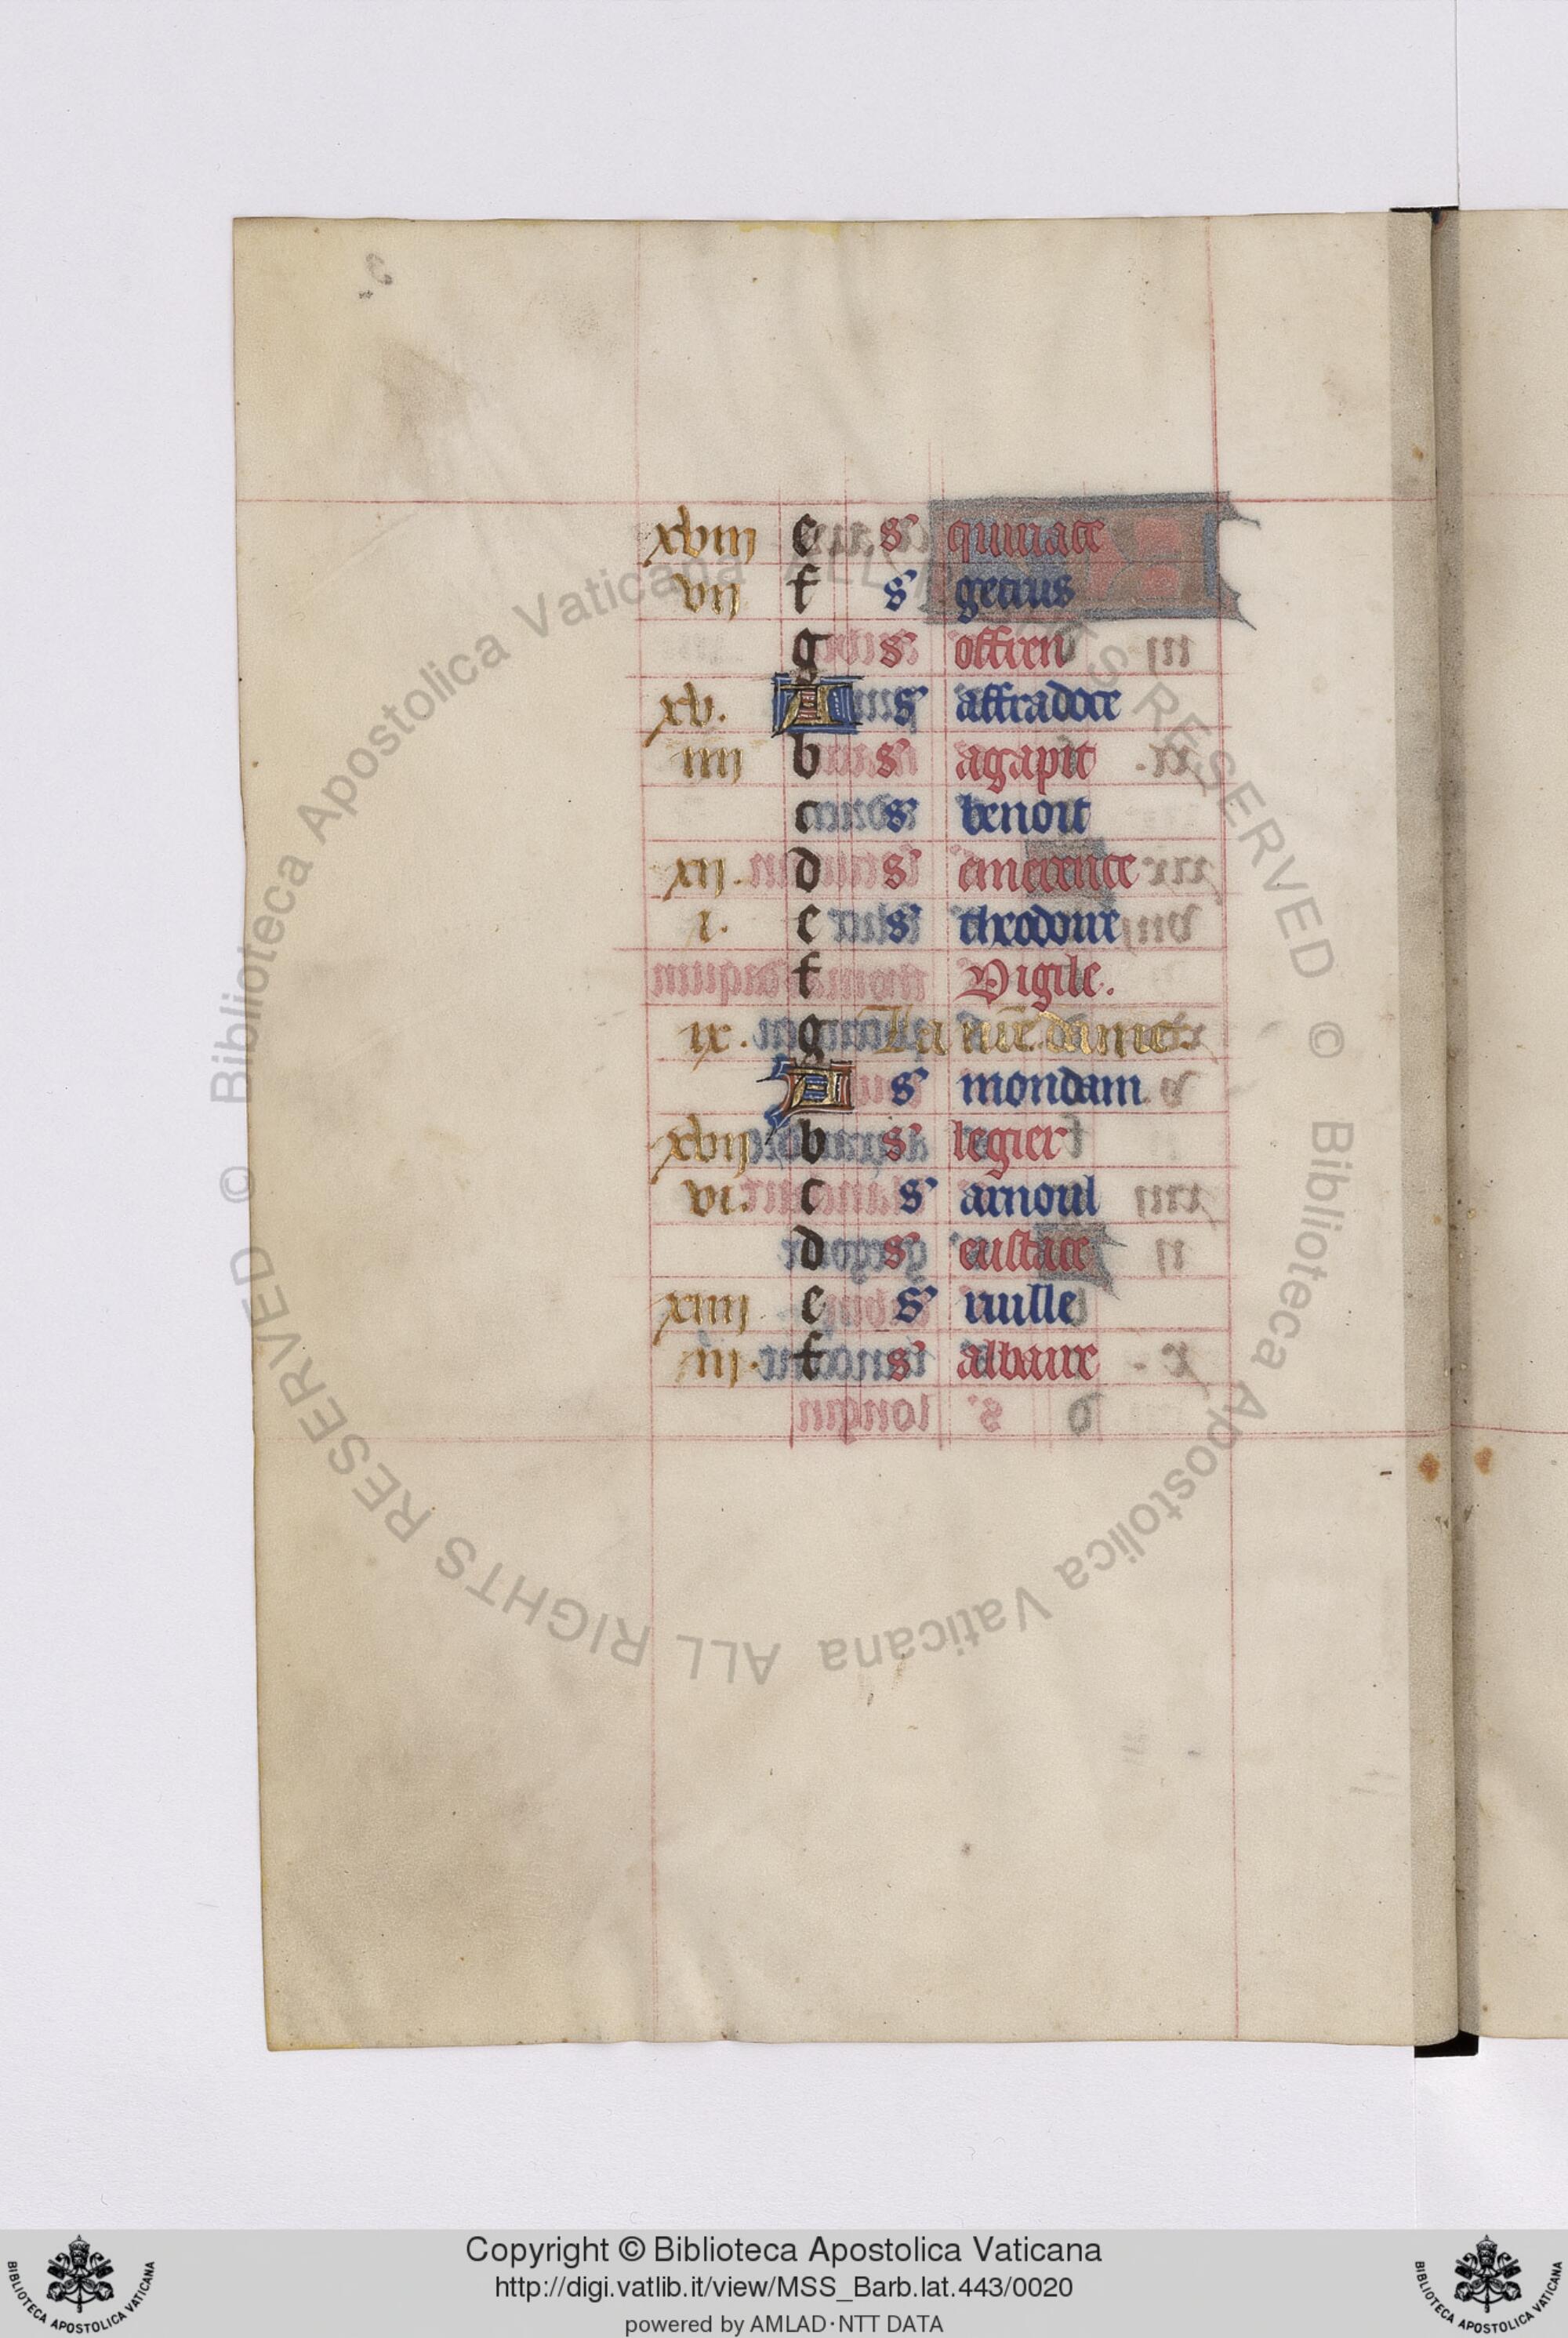 xviij e s' quiriace
vij f s' gerius
g s' offren
xv. A s' affradoce
iiij b s' agapit
c s' benoit
xij. d s' emerence
i. e s' theodoire
f Vigile.
ix. g La nr̃e dame.
A s' mondain
xvij b s' legier
vi. c s' arnoul
d s' eustace
xiiij e s' ruille
iij. f s' albaire
© Biblioteca Apostolica Vaticana ALL RIGHTS RESERVED
© Biblioteca Apostolica Vaticana ALL RIGHTS RESERVED
Copyright © Biblioteca Apostolica Vaticana
http://digi.vatlib.it/view/MSS_Barb.lat.443/0020
powered by AMLAD·NTT DATA
BIBLIOTECA APOSTOLICA VATICANA
BIBLIOTECA APOSTOLICA VATICANA